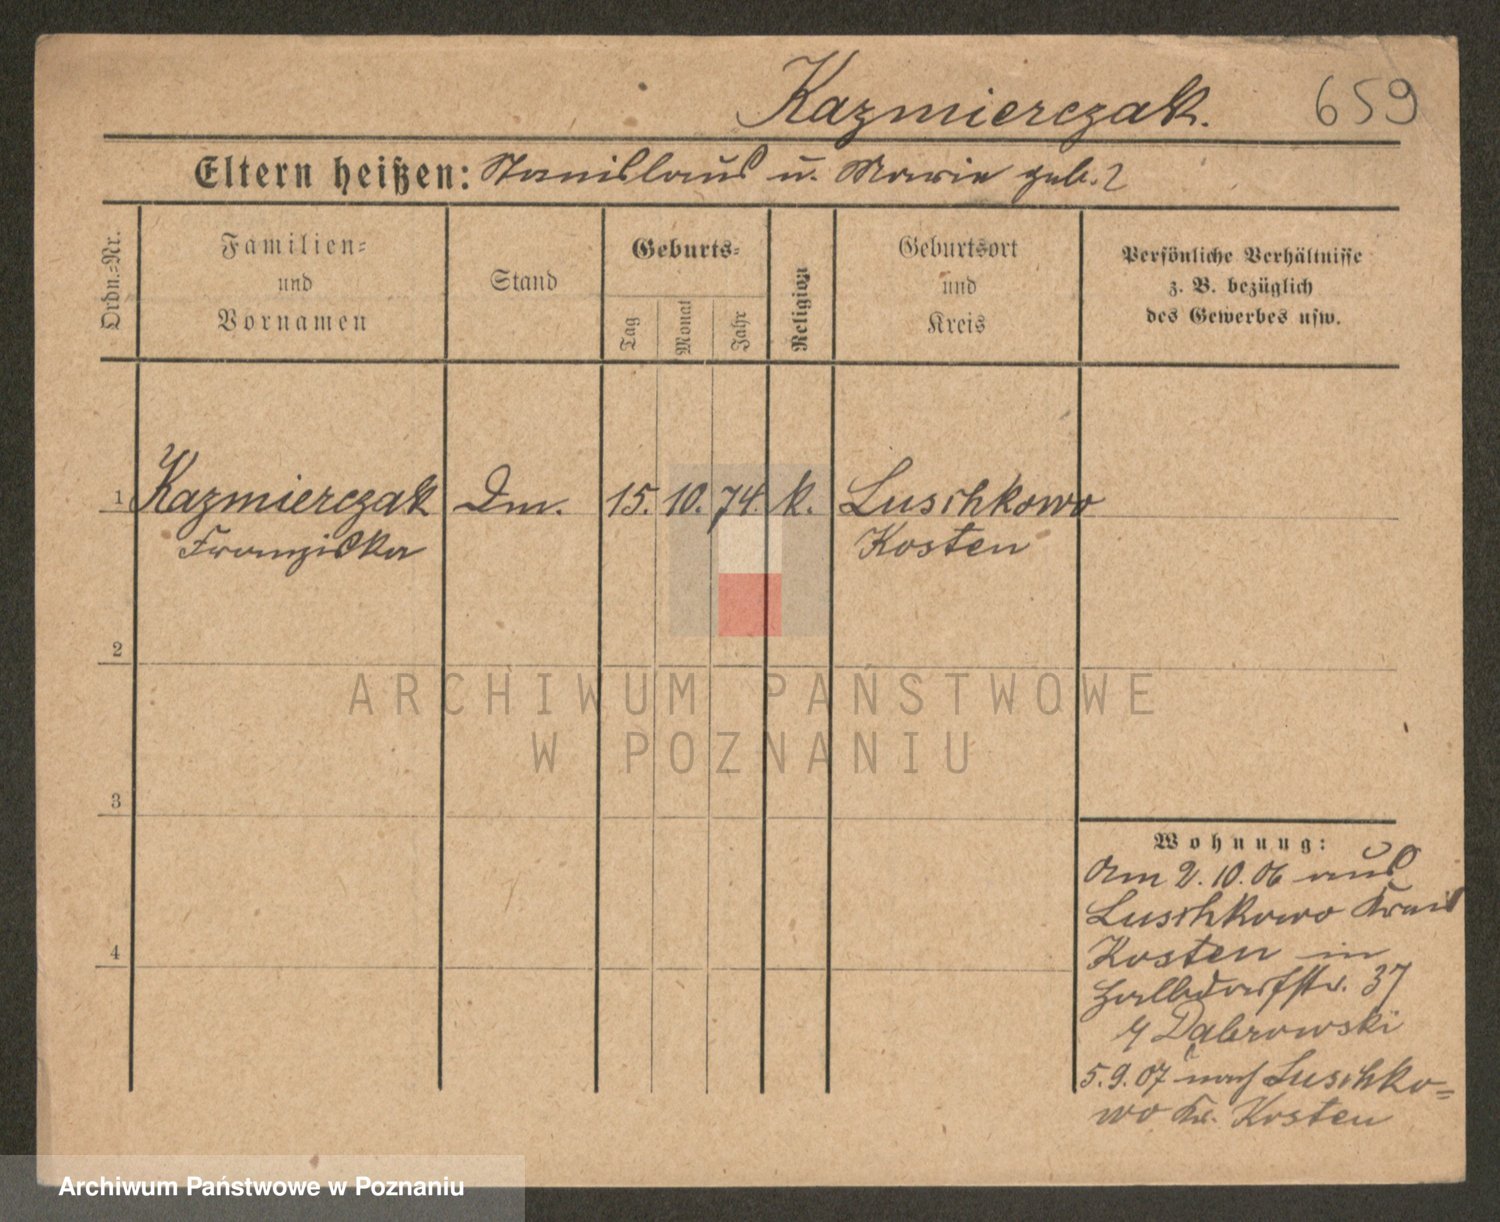 Kazmierczak.
659
Eltern heißen: Stanislaus u. Marie geb. ?
Ordn.=Nr.
Familien=
und
Vornamen
Stand
Geburts=
Tag
Monat
Jahr
Religion
Geburtsort
und
Kreis
Persönliche Verhältnisse
z. B. bezüglich
des Gewerbes usw.
1 Kazmierczak Dm. 15. 10. 74. k. Luschkowo
Franziska Kosten
2
3
4
ARCHIWUM PAŃSTWOWE
W POZNANIU
Wohnung:
Am 2. 10. 06 aus
Luschkowo Kreis
Kosten in
Halbdorfstr. 37
Dąbrowski
5. 9. 07 nach Luschko=
wo Kr. Kosten
Archiwum Państwowe w Poznaniu